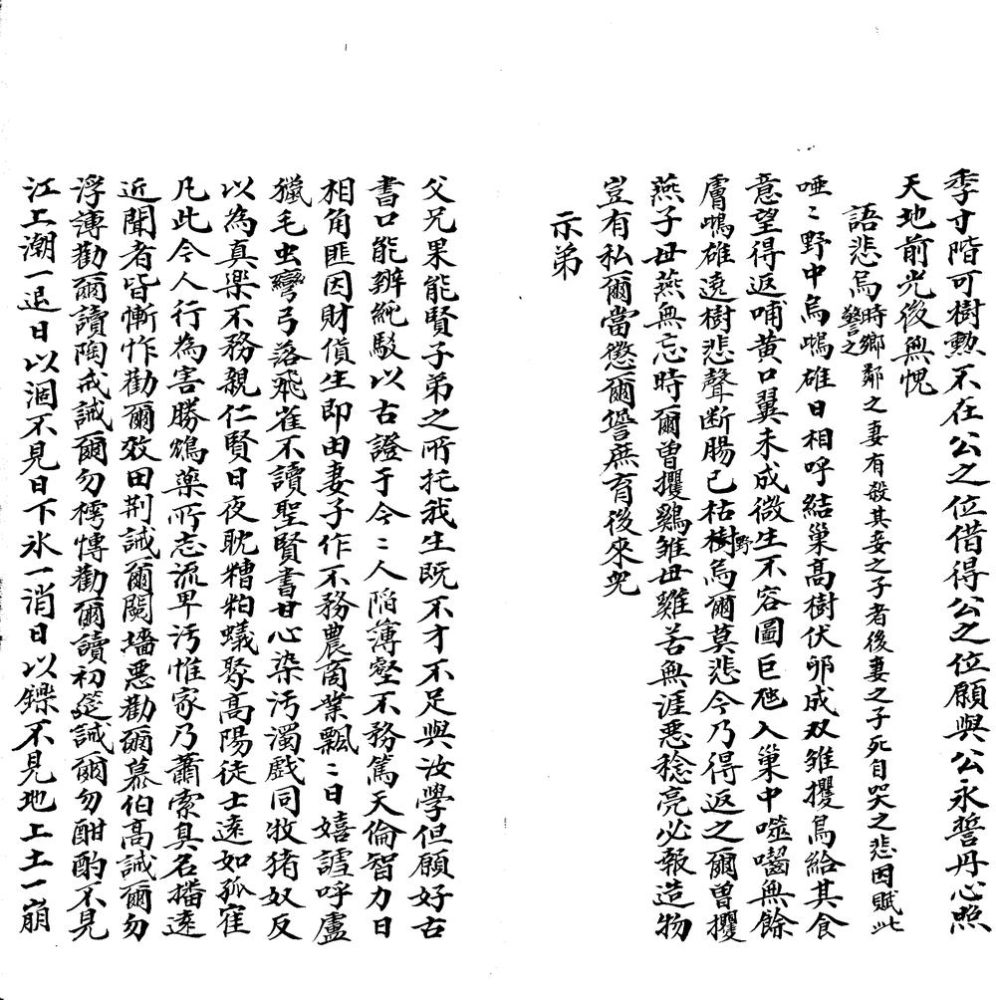 季寸階可樹勲不在公之位借得公之位願與公永誓丹心照
天地前光後無愧
語悲烏時鄉鄰之妻有殺其妾之子者後妻之子死自哭之悲因賦此
警之
唖〻野中烏鳴雄日相呼結巢高樹伏卵成双雏攫鳥給其食
意望得返哺黄口翼未成微生不容圖巨虺入巢中噬齧無餘
膚鳴雄遶樹悲聲断腸已枯樹野烏爾莫悲今乃得返之爾曾攫
燕子母燕無忘時爾曽攫鷄雏母雞苦無涯悪稔亮必報造物
豈有私爾當懲爾譬庶有後來兒
示弟
父兄果能賢子弟之所托我生既不才不足與汝學但願好古
書口能辨純駁以古證于今〻人陷薄壑不務篤天倫智力日
相角匪因財貨生即由妻子作不務農商業飄〻日嬉謔呼盧
獵毛虫彎弓落飛雀不讀聖賢書甘心染污濁戯同牧猪奴反
以為真楽不務親仁賢日夜耽糟粕蟻聚高陽徒士遠如孤寉
凡此今人行為害勝鴆藥所志流卑污惟家乃蕭索臭名播遠
近聞者皆慚怍勸爾效田荆誡爾鬩墻悪勸爾慕伯高誡爾勿
浮薄勸爾讀陶戒誡爾勿樗愽勸爾讀初筵誡爾勿酣酌不見
江上潮一退日以涸不見日下氷一消日以鑠不見地上土一崩